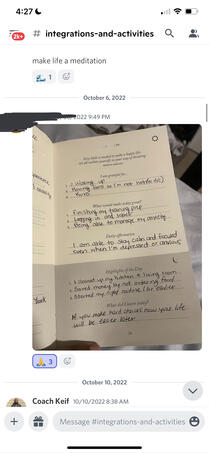 4:27
2k+
# integrations-and-activities
make life a meditation
1
October 6, 2022
2022 9:49 PM
Very little is needed to make a happy life;
it's all within yourself, in your way of thinking.
I am grateful for...
1. Waking up
What would make today great?
1. Finishing my training
3. Being able to manage my anxiety
Daily affirmation
I am able to stay calm and focused
even when I'm depressed or anxious
Highlights of the Day
1. I cleaned up my kitchen & living room
2. Saved money by not ordering food
3. Started my night routine earlier
What did I learn today?
If you make hard choices now your life
will be easier later
3
October 10, 2022
Coach Keif 10/10/2022 8:38 AM
Message #integrations-and-activities